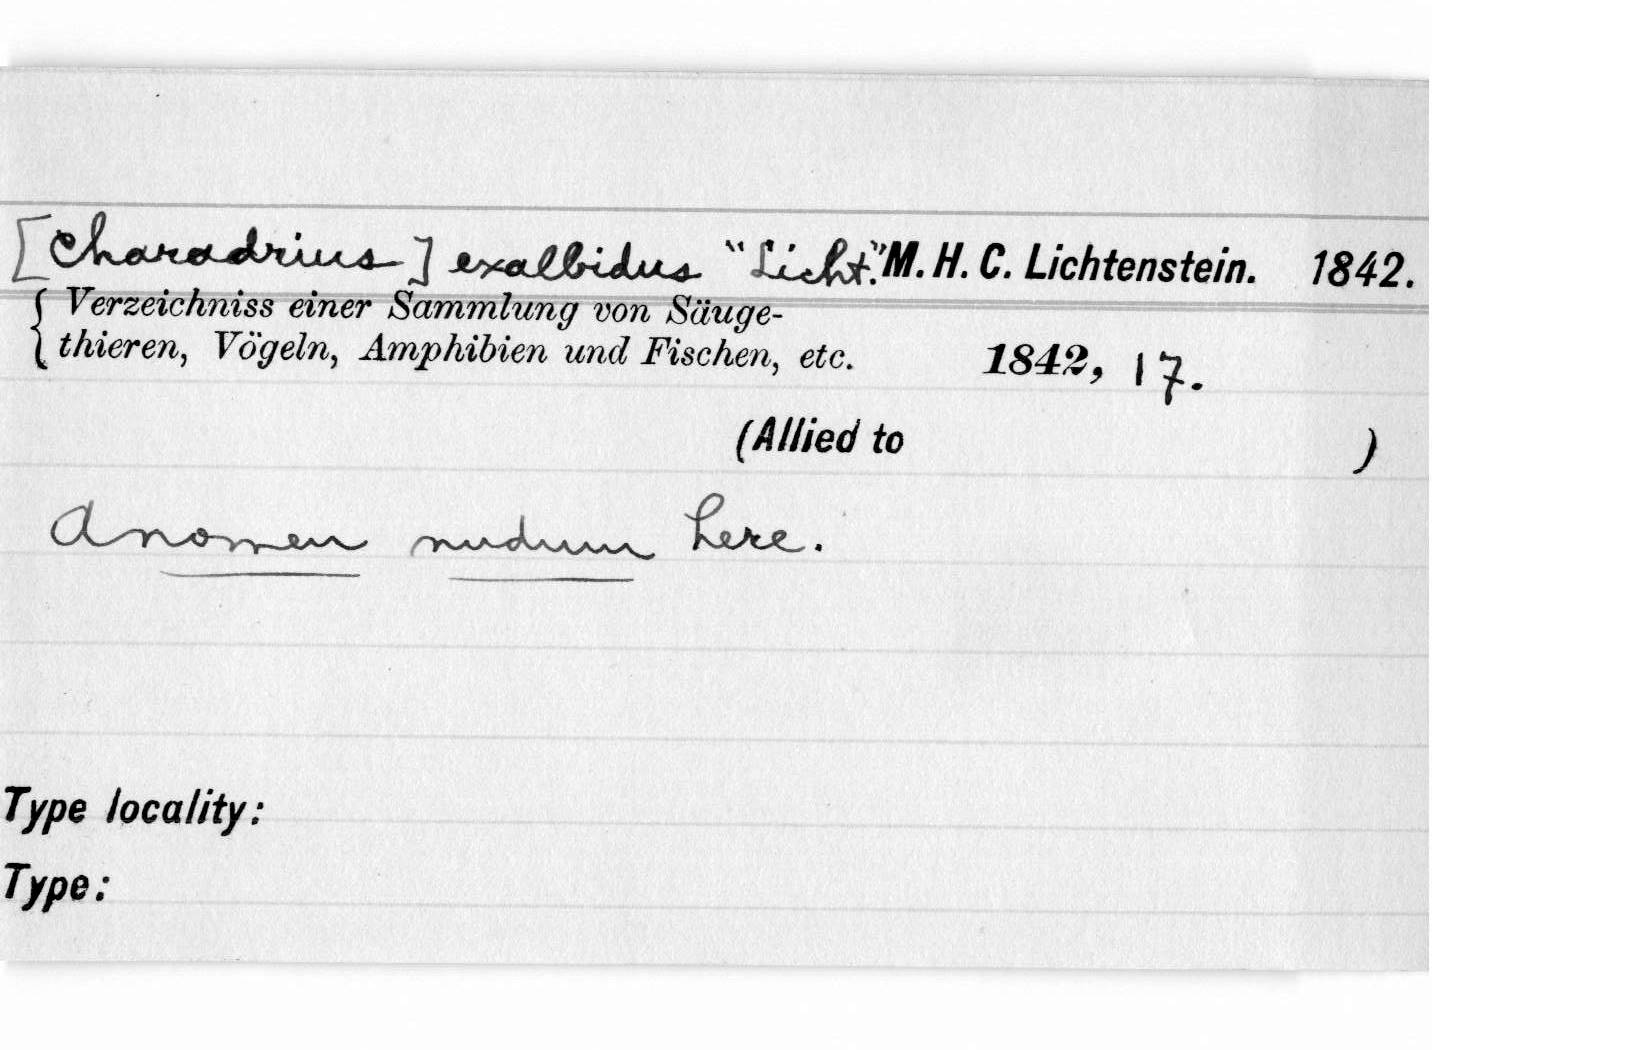 [Charadrius] exalbidus "Licht." M. H. C. Lichtenstein. 1842.
{ Verzeichniss einer Sammlung von Säuge-
thieren, Vögeln, Amphibien und Fischen, etc. 1842, 17.
(Allied to )
A nomen nudum here.
Type locality:
Type: